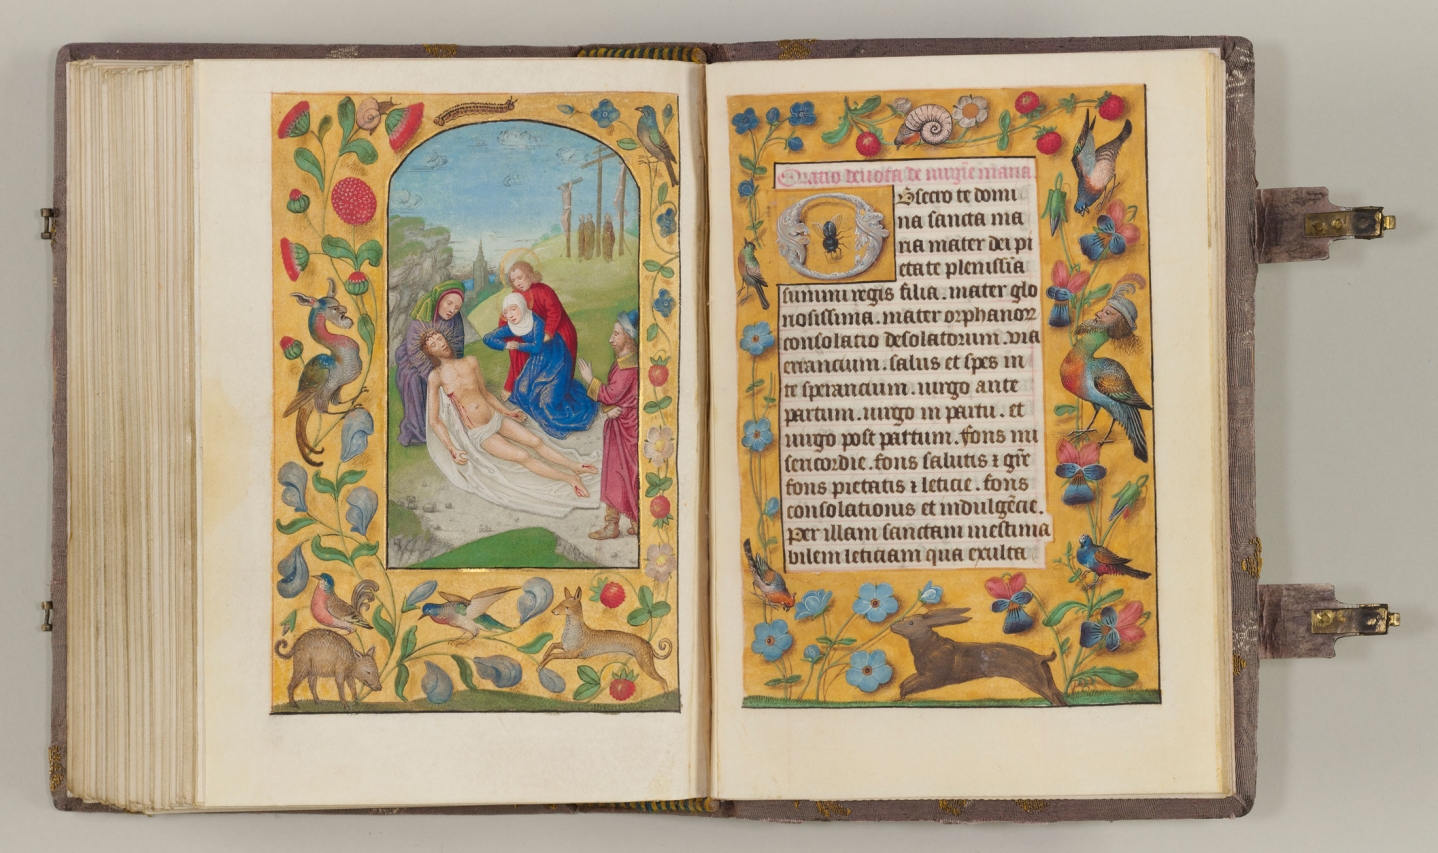 Oratio deuota de uirgīe maria.
Obsecro te domi
na sancta ma
ria mater dei pi
etate plenissīa
summi regis filia. mater glo
riosissima. mater orphanoꝝ
consolatio desolatorum. via
errancium. salus et spes in
te sperancium. uirgo ante
partum. uirgo in partu. et
uirgo post partum. fons mi
sericordie. fons salutis ⁊ grē
fons pietatis ⁊ leticie. fons
consolationis et indulgēcie.
Per illam sanctam inestima
bilem leticiam qua exulta